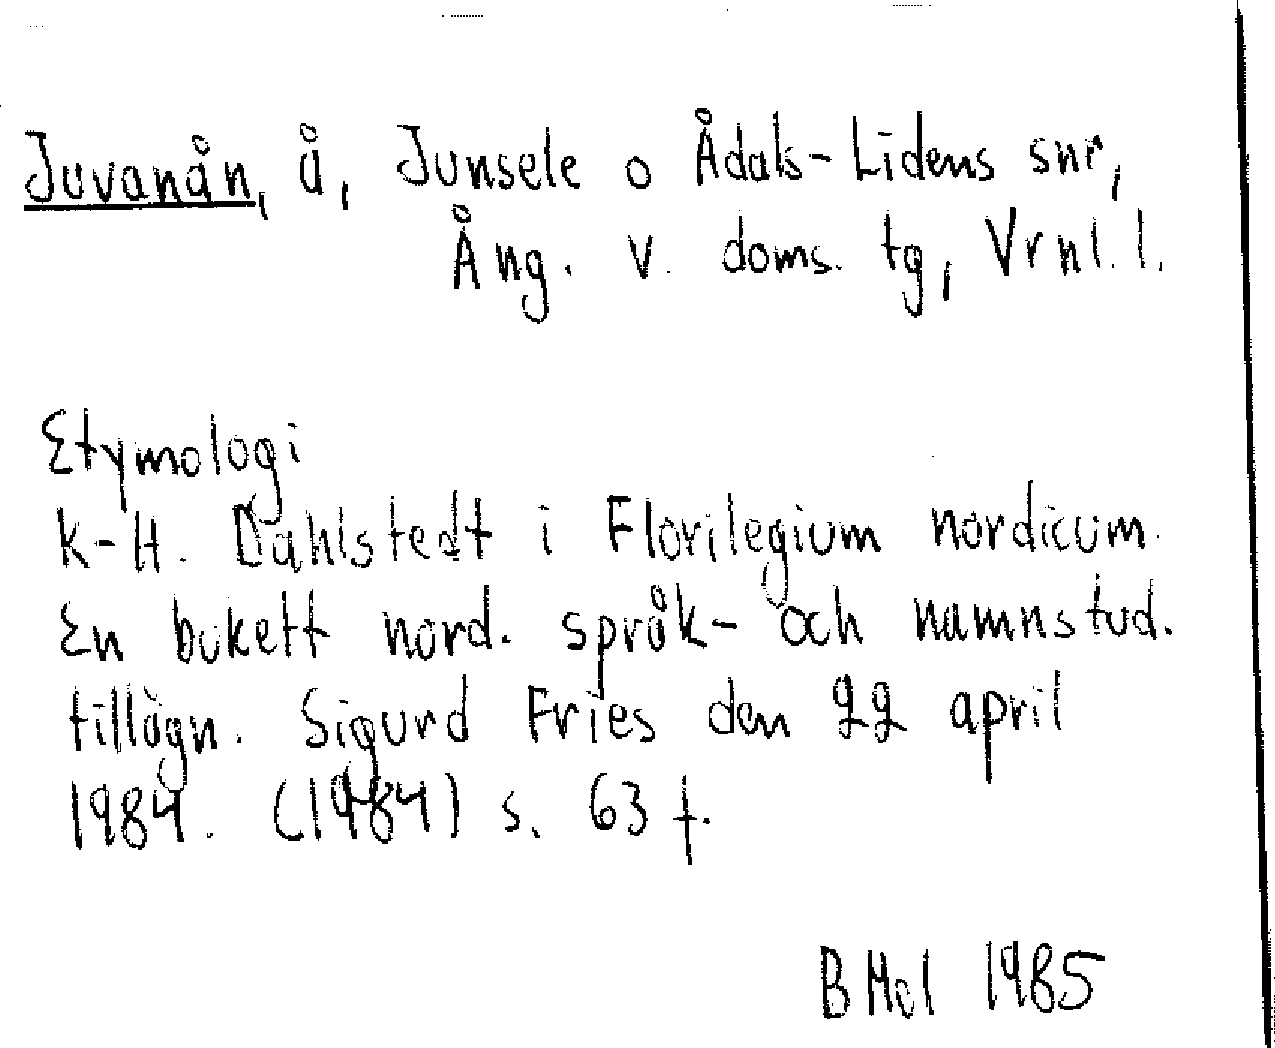 Juvanån, å, Junsele o Ådals-Lidens snr,
Ång. v. doms. tg, Vrnl. l.
Etymologi
K-H. Dahlstedt i Florilegium nordicum.
En bukett nord. språk- och namnstud.
tillägn. Sigurd Fries den 22 april
1984. (1984) s. 63 f.
B Hol 1985